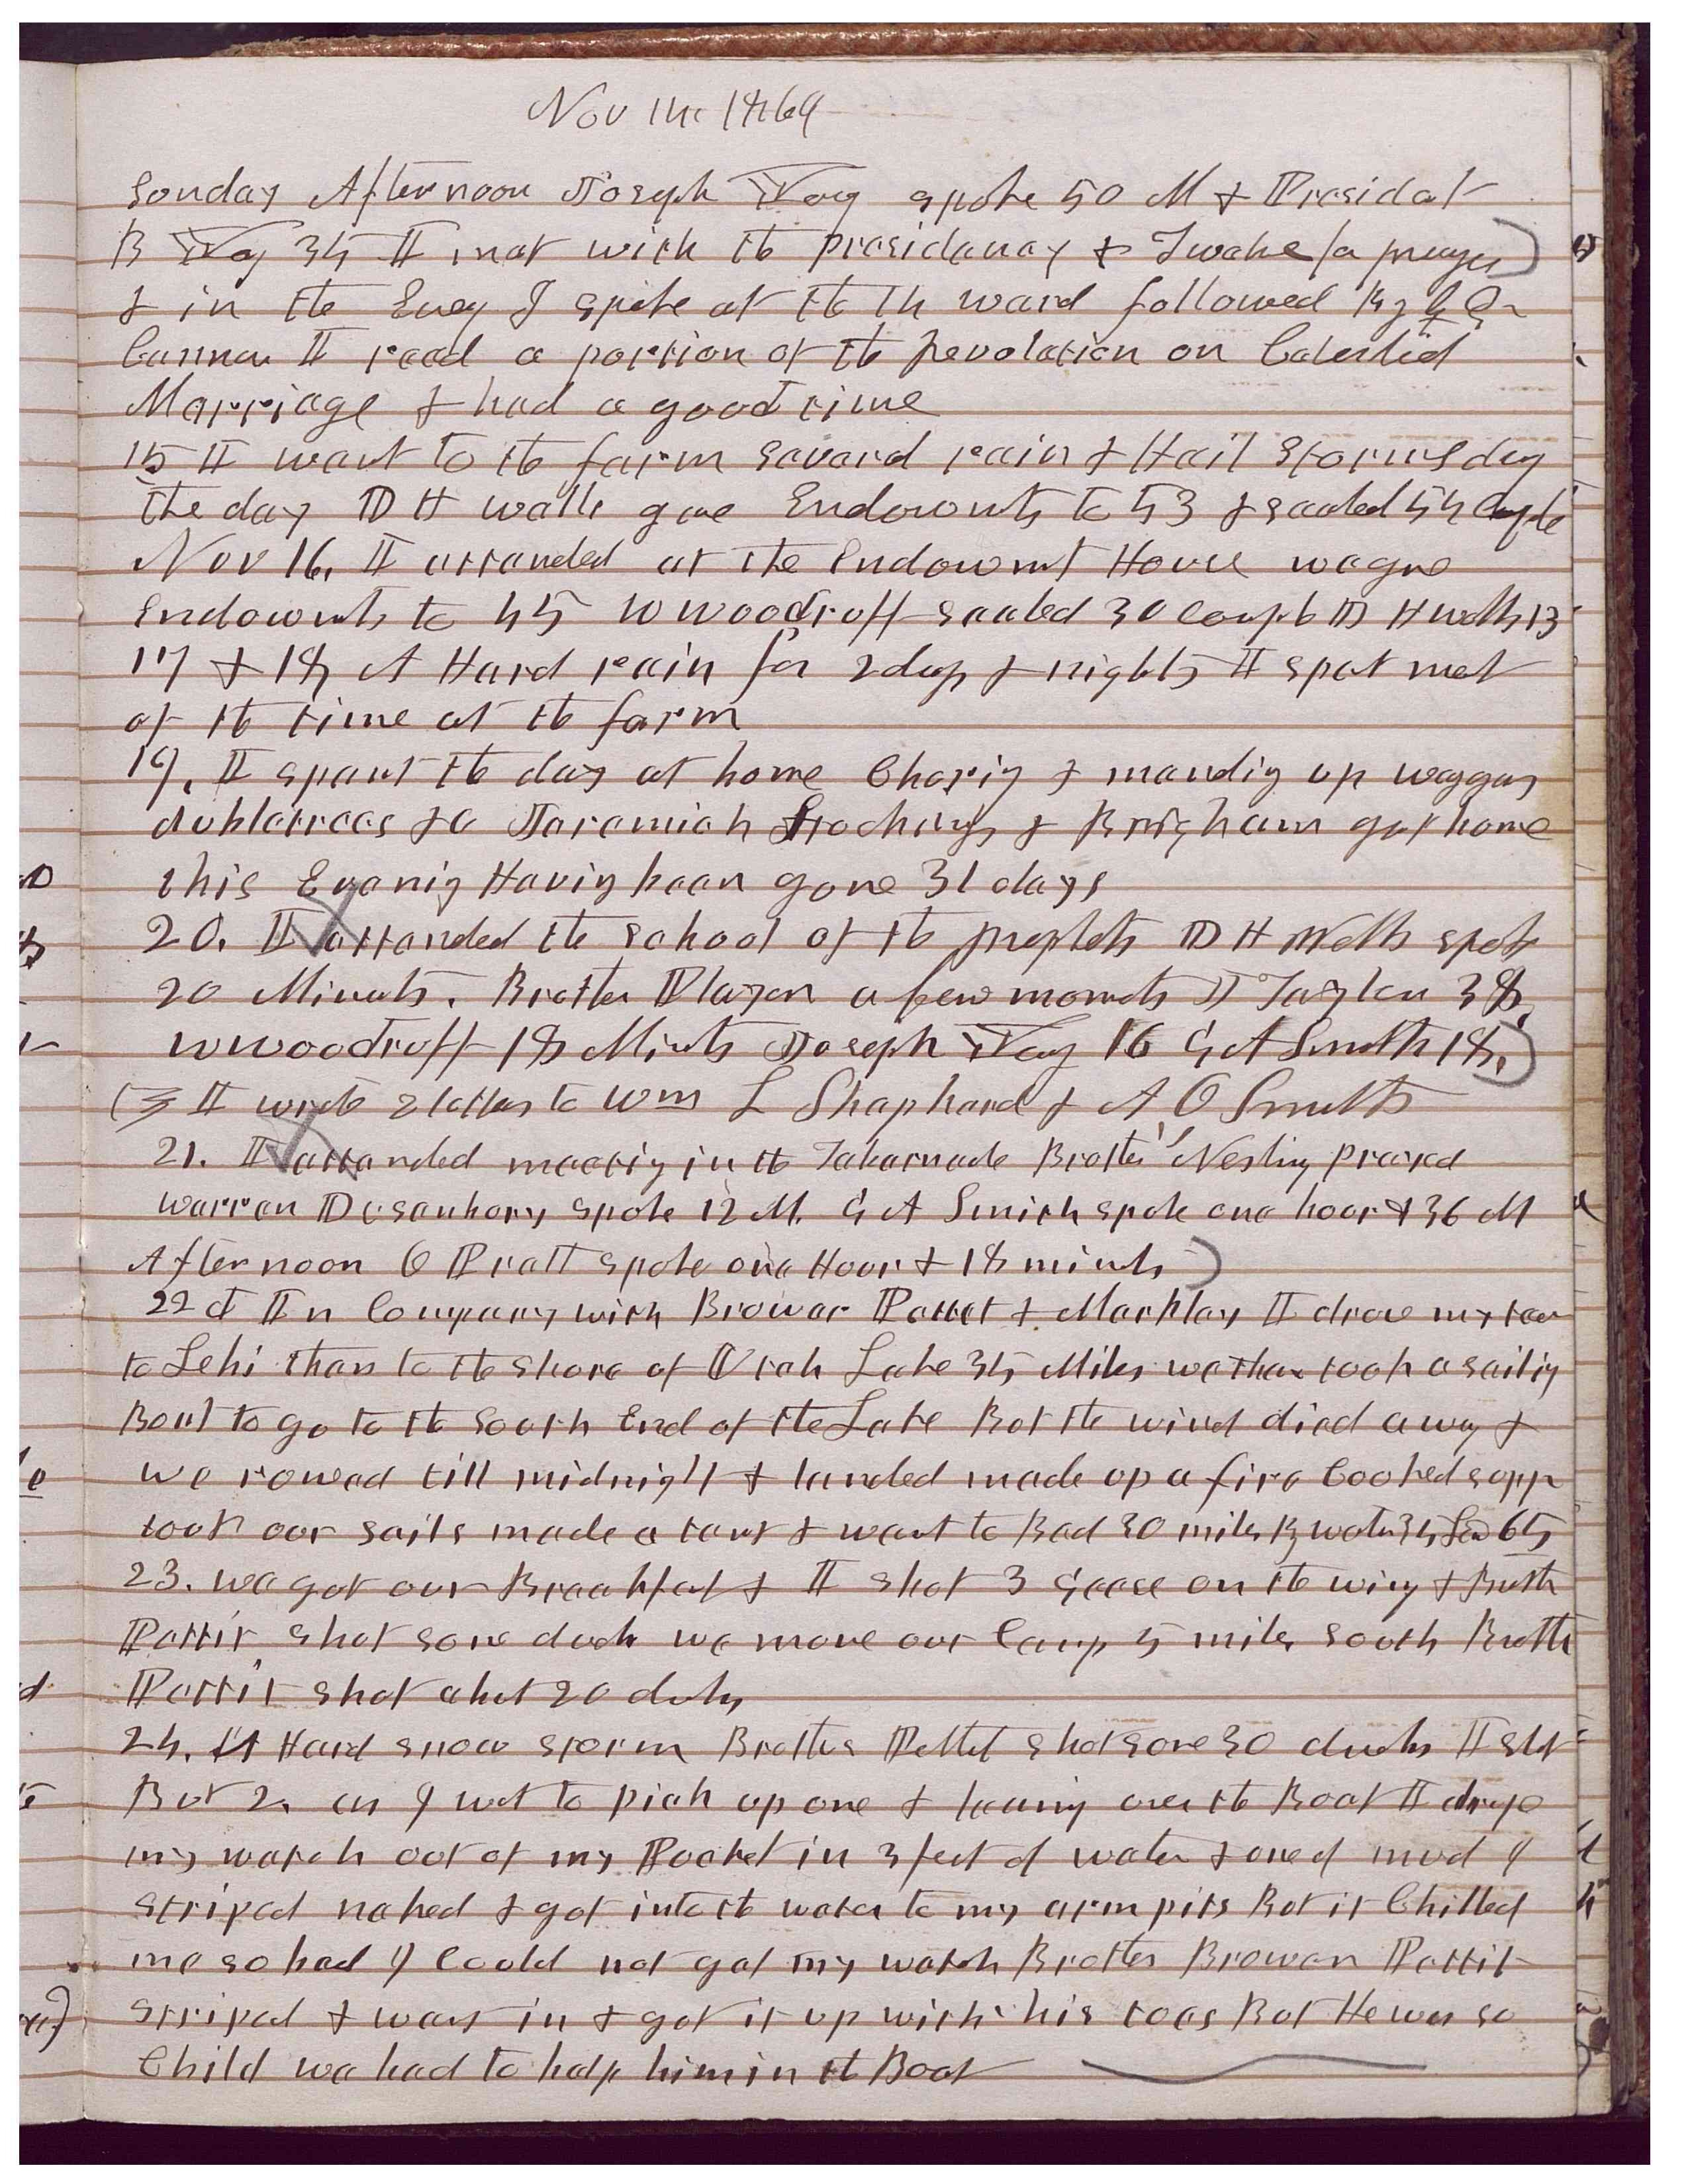 Nov 14t 1869
Sunday Afternoon Joseph Young spoke 50 M & Presidet
B Young 35 I met with the presidency & Twelve for prayer
& in the Eveng I spoke at the 14 ward followed By G Q
Cannon I read a portion of the Revelation on Celestial
Marriage & had a good time
15 I went to the farm several rain & Hail Storms duing
the day D H wells gave Endowmts to 53 & sealed 54 Couple
Nov 16. I attended at the Endowmt House we gave
Endowmts to 45 W Woodruff sealed 30 Coupls D H wells 13
17 & 18 A Hard rain for 2 days & nights I spet most
of the time at the farm
19. I spent the day at home Choring & mending up waggons
dubletrees &c Jeremiah & Brigham got home
this Evening Having been gone 31 days
20. I attended the school of the prophets D H Wells spoke
20 Minuts. Brother Player a few moments J Taylor 38,
W Woodruff 18 Minuts Joseph Young 16 G A Smith 18.
I wrote 2 letters to Wm L Shephard & A O Smith
21. I attended meeting in the Tabernacle Brother Nesling Preached
Warren Dusenbery spoke 12 M. G A Smith spoke one hour & 36 M
Afternoon O Pratt spoke one Hour & 18 minuts
22d In Company with Brower Pettet & Markley I drove my team
to Lehi then to the shore of Utah Lake 35 Miles we then took a sailing
Boat to go to the South End of the Lake But the wind died away &
we rowed till midnight & landed made up a fire Cooked supp
took our sails made a tent & went to Bed 30 miles By water 35 Land 65
23. we got our Breakfast & I shot 3 Geese on the wing & Broth
Pettit shot some ducks we move our Camp 5 miles South Brother
Pettit shot about 20 ducks
24. A Hard snow storm Brother Pettet shot some 30 ducks I shot
But 2. as I went to pick up one & leaning over the Boat I droped
my watch out of my Pocket in 3 feet of water & one of mud I
striped naked & got into the water to my arm pits But it Chilled
me so bad I could not get my watch Brother Brower Pettit
striped & went in & got it up with his toes But He was so
Child we had to help him in the Boat